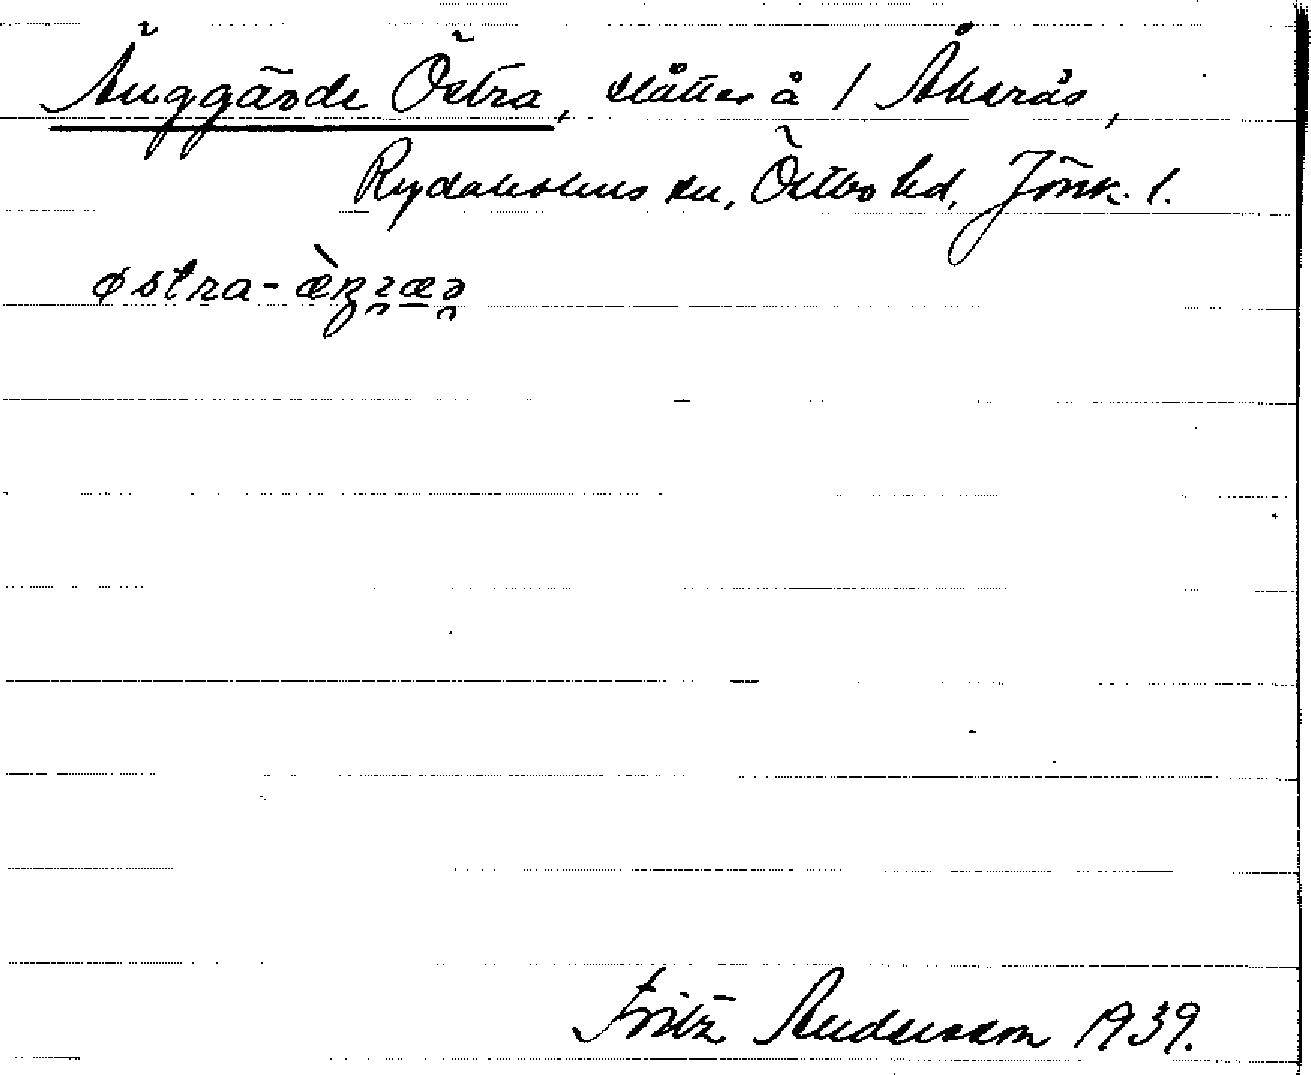 Änggärde Östra, slåtter å 1 Åkerås,
Rydaholms sn, Östbo hd, Jönk. l.
östra-
Fritz Andersson 1939.